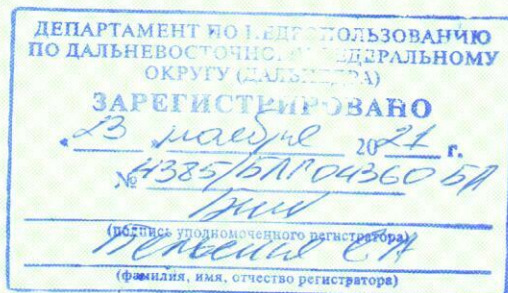 ДЕПАРТАМЕНТ ПО НЕДРОПОЛЬЗОВАНИЮ
ПО ДАЛЬНЕВОСТОЧНОМУ ФЕДЕРАЛЬНОМУ
ОКРУГУ (ДАЛЬНЕДРА)
ЗАРЕГИСТРИРОВАНО
«23 ноября 2021 г.
№ 4385/БЛГ 04360 БЛ
(подпись уполномоченного регистратора)
(фамилия, имя, отчество регистратора)